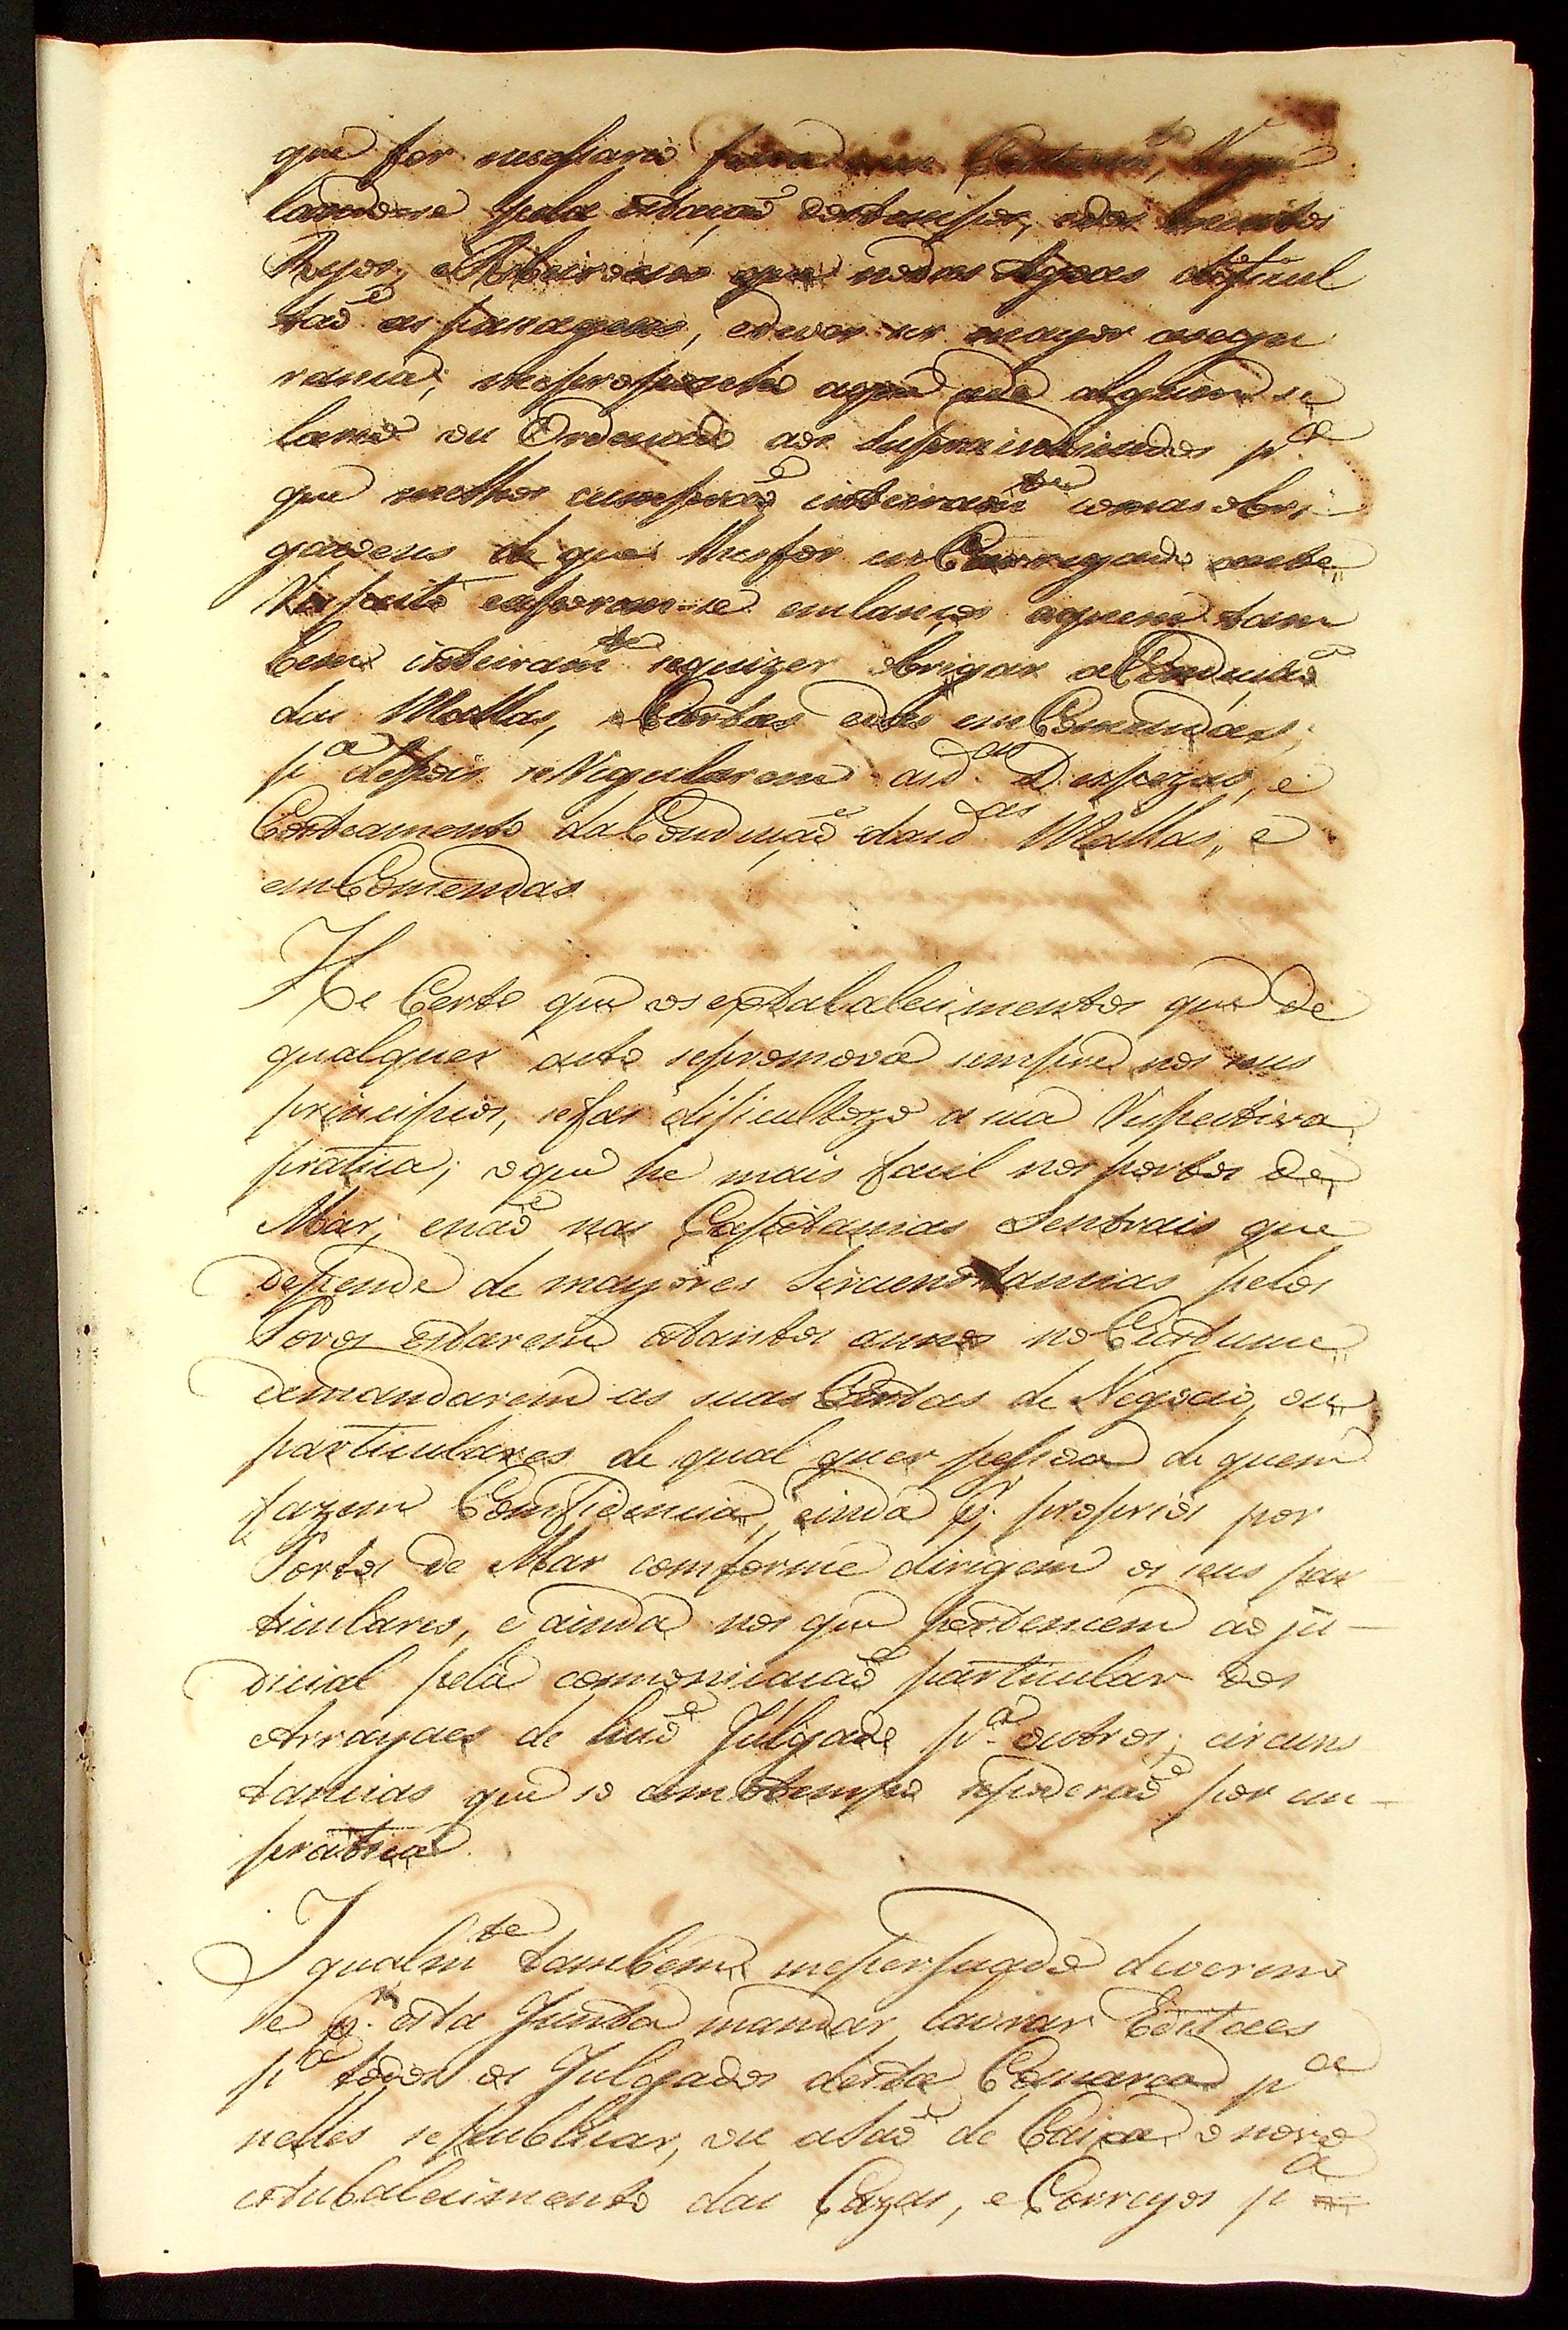 que for necessario
landose pela estaçaõ dos tempos, e dos muitos
Reyos, e Ribeiroens que nas das Agoas deficul
taõ as pasnagens, e dever ser mayor a segu
rancia; me propunha aque se de algum se
lario ou Ordenado aos Supraintendentes p.ª
que melhor cumpraõ inteiram.te com as obri-
gaçoens de que lhes for en Carregado neste
Respeito e aporem-se em lanços a quem tam
bem inteiram.te se quizer obrigar a Conduçaõ
das Mallas, e Cartas e das en Comendas;
p.ª depois se Regularem as d.as Despezas, e
Costeamento da Conduçaõ das d.as Mallas, e
en Comendas
He Certo que os estabalecimentos que de
qualquer auto se promova sempre nos seus
principios, se faz dificultozo a sua Respectiva
pratica; o que he mais facil nos portos de
Mar; e naõ nas Capitanias Sentrais que
depende de mayores Sircunstancias pelos
Povos estarem a tantos annos no Custume
de mandarem as suas Cartas de Negocio, ou
particulares de qual quer pessoa de quem
fazem Confidencia, ainda p.r proprios por
Portos de Mar comforme dirigem os seus par
ticulares, e ainda nos que pertencem ao ju-
dicial pela comonicaçaõ particular dos
Arrayaes de huũ Julgado p.ª outros; circuns
tancias que so com o tempo se poderaõ por em-
pratica.
Igualm.te tambem me persuado deverem
se p.r esta Junta mandar lavrar Editaes
p.ª todos os Julgados desta Comarca p.ª
nelles se publicar, ou a Saõ de Caixa o novo
estabalecimento das Cazas, e Correyos p.ª